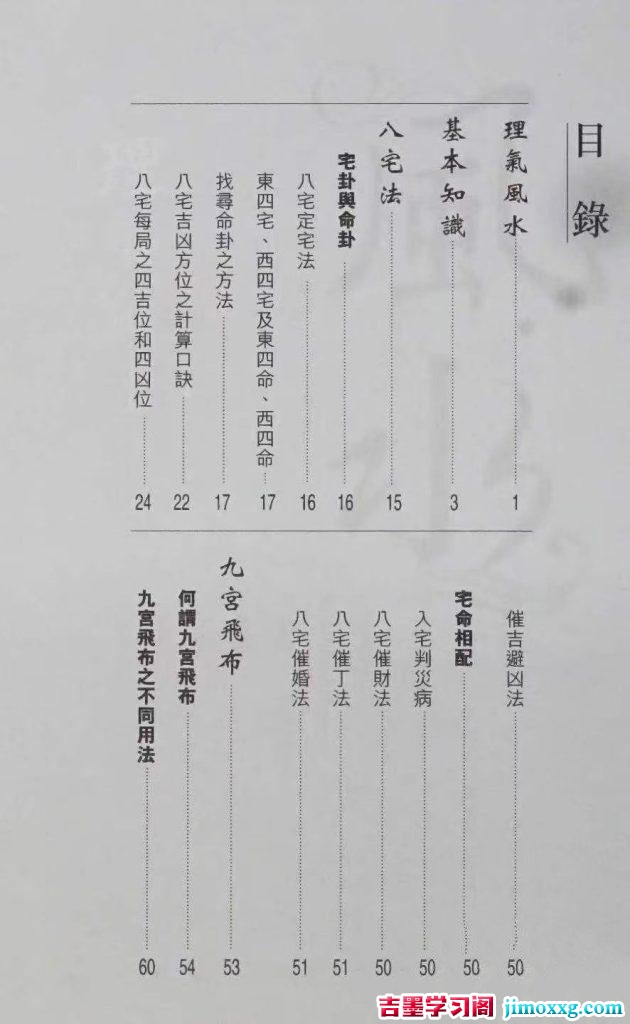 目錄
理氣風水 1
基本知識 3
八宅法 15
宅卦與命卦 16
八宅定宅法 16
東四宅、西四宅及東四命、西四命 17
找尋命卦之方法 17
八宅吉凶方位之計算口訣 22
八宅每局之四吉位和四凶位 24
催吉避凶法 50
宅命相配 50
入宅判災病 50
八宅催財法 50
八宅催丁法 51
八宅催婚法 51
九宮飛布 53
何謂九宮飛布 54
九宮飛布之不同用法 60
吉墨学习阁 jimoxxg.com